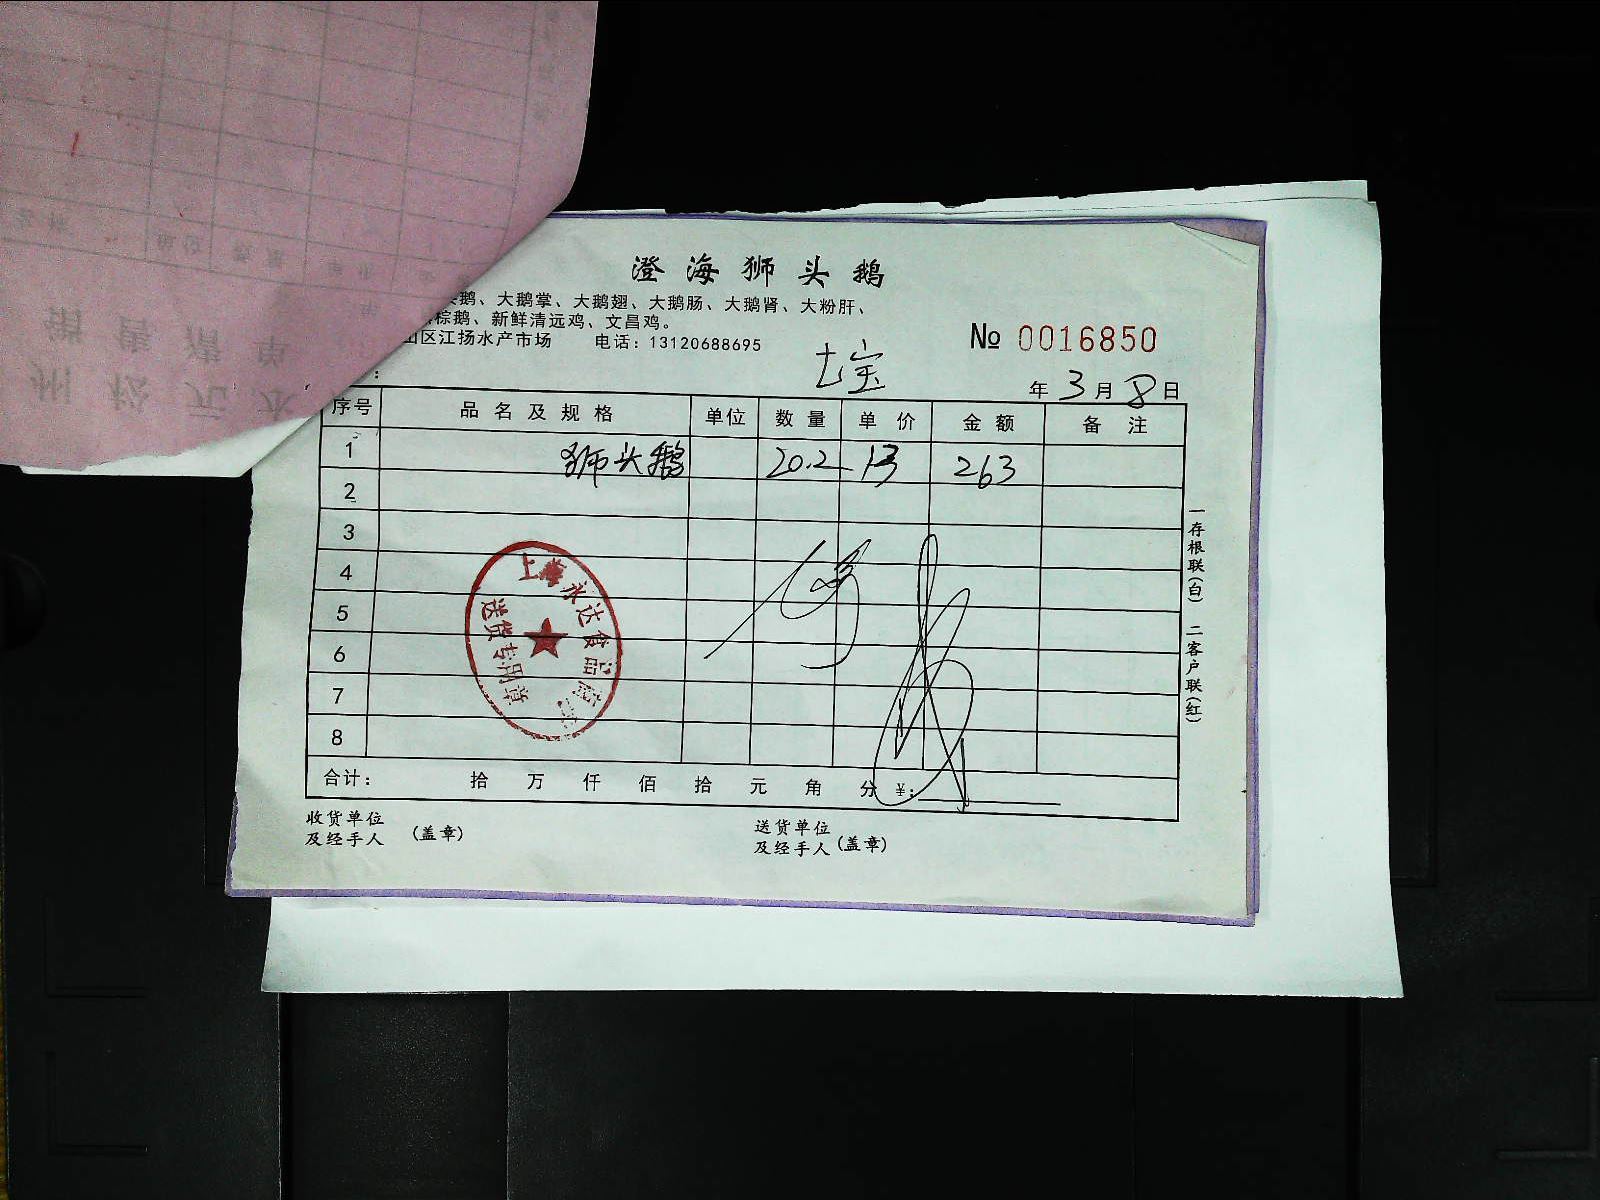 澄海狮头鹅
头鹅、大鹅掌、大鹅翅、大鹅肠、大鹅肾、大粉肝、
棕鹅、新鲜清远鸡、文昌鸡。
山区江扬水产市场 电话：13120688695
№ 0016850
七宝
年 3 月 8 日
序号 品名及规格 单位 数量 单价 金额 备注
1 狮头鹅 20.2 13 263
2
3
4
5
6
7
8
上海永达食品
送货专用章
合计： 拾 万 仟 佰 拾 元 角 分 ¥：
收货单位
及经手人 （盖章）
送货单位
及经手人（盖章）
一存根联（白） 二客户联（红）